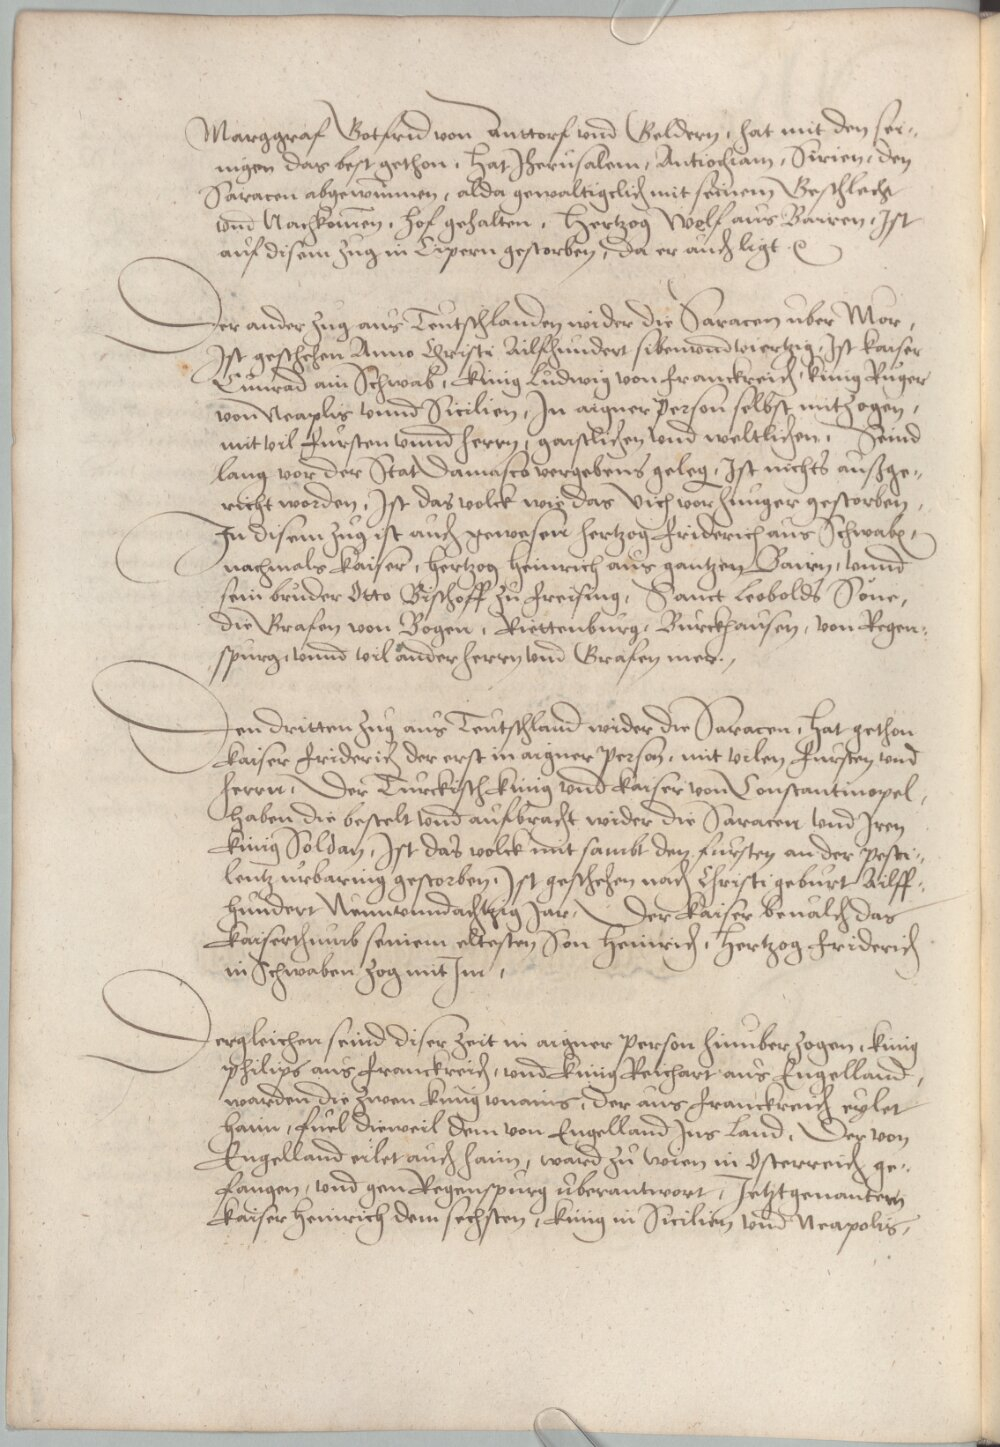 Marggraf Gotfrid von Anttorf vnd Geldern, hat mit den sei-
nigen das best gethon, hat Jherusalem, Antiochiam, Sirien, den
Saracen abgewunnen, alda gewaltigclich mit seinem Geschlecht
vnd Nachkomen, hof gehalten, Hertzog Wolf aus Bairen, Ist
auf disem zug in Cipern gestorben, da er auch ligt
Der ander zug aus Teutschlanden wider die Saracen uber Mör,
Ist geschehen Anno Christi Ailfhundert sibenvndviertzig, Ist kaiser
Cunrad ain Schwab, König Ludwig von Franckreich, künig Ruger
von Neaplis vnnd Sicilien, In aigner Person selbst mitzogen,
mit vil Fürsten vnnd herrn, gaistlichen vnd weltlichen, Seind
lang vor der Stat Damasco vergebens geleg, Ist nichts außge-
richt worden, Ist das volck wie das Vich vor hunger gestorben,
In disem zug ist auch gewesen hertzog Friderich aus Schwabn,
nachmals Kaiser, hertzog heinrich aus gantzen Bairn, vnnd
sein bruder Otto Bischoff zu Freising, Sanct Leobolds Söne,
die Grafen von Bogen, Riettenburg, Burckhausen, von Regen-
spurg, vnnd vil ander herrn vnd Grafen mer,
Den dritten zug aus Teutschland wider die Saracen, hat gethon
Kaiser Friderich der erst in aigner Person, mit vilen Fürsten vnd
herrn, Der Türckisch König vnd Kaiser von Constantinopel,
haben die bestelt vnd aufbracht wider die Saracen vnd Iren
König Soldan, Ist das volck mit sambt den fursten an der pesti-
lentz urbaring gestorben, Ist geschehen nach Christi geburt Ailff-
hundert Neunvnndachtzig Jar, Der Kaiser beualch das
Kaiserthumb seinem eltesten Son Heinrich, Hertzog Friderich
in Schwaben zog mit Im,
Dergleichen seind diser zeit in aigner Person hinuber zogen, künig
Philips aus Franckreich, vnd künig Reichart aus Engelland,
warden die zwen künig vnains, der aus Franckreich eylet
haim, fuel dieweil dem von Engelland Ins Land, Der von
Engelland eilet auch haim, ward zu Wien in Osterreich ge-
fangen, vnd gen Regenspurg überantwort, Jetztgenantem
Kaiser Heinrich dem sechsten, künig in Sicilien vnd Neapolis,